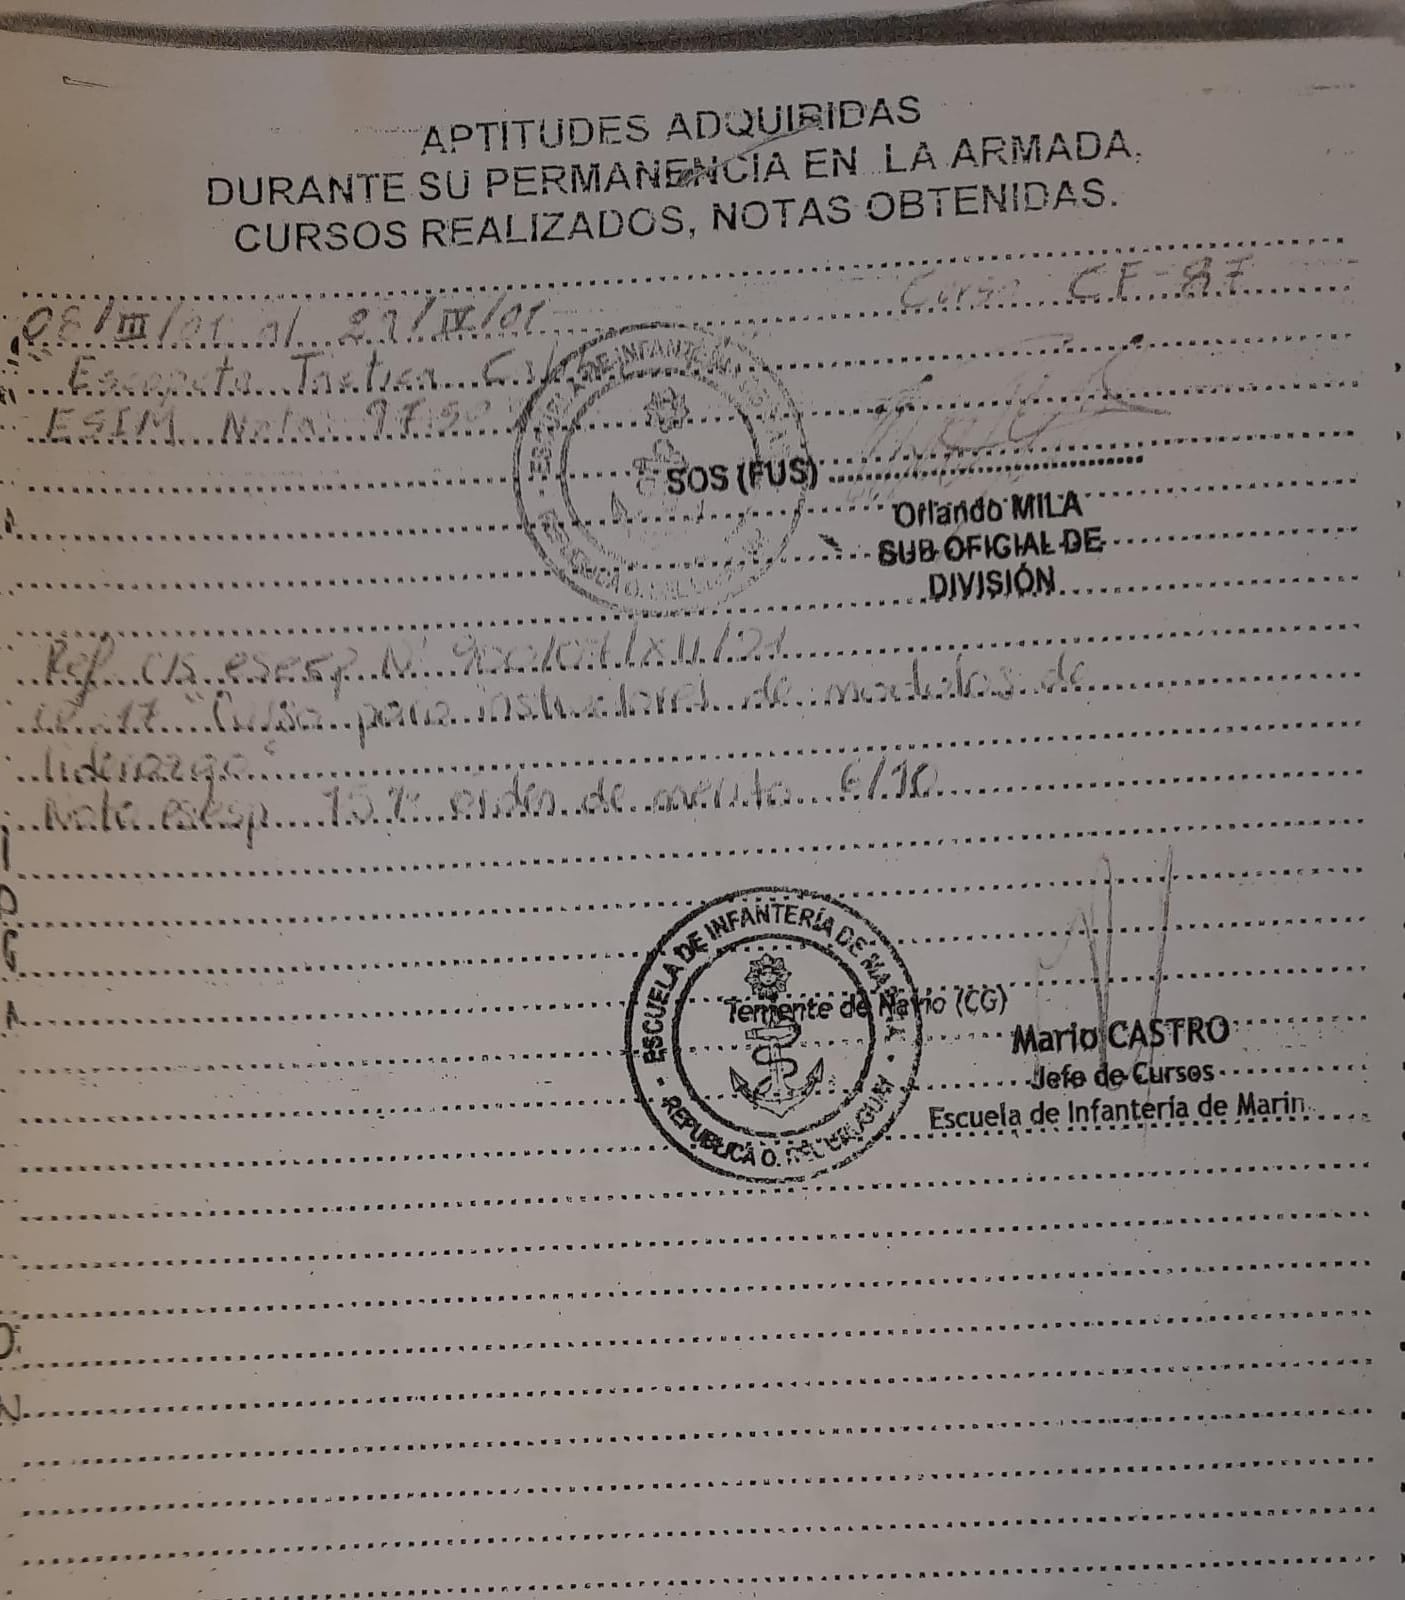 APTITUDES ADQUIRIDAS
DURANTE SU PERMANENCIA EN LA ARMADA,
CURSOS REALIZADOS, NOTAS OBTENIDAS.
Curso CF-87
08/III/01 al 27/IV/01
"Escopeta Tactica
ESIM Nota: 97.50
ESCUELA DE INFANTERÍA
SOS (FUS)
Orlando MILA
SUB OFICIAL DE
DIVISIÓN
Ref. C/S esesp N°
"Curso para instructores de modulos de
liderazgo"
Nota esesp orden de merito 6/10
ESCUELA DE INFANTERÍA DE MARINA
REPUBLICA O. DEL URUGUAY
Teniente de Navio (CG)
Mario CASTRO
Jefe de Cursos
Escuela de Infantería de Marin